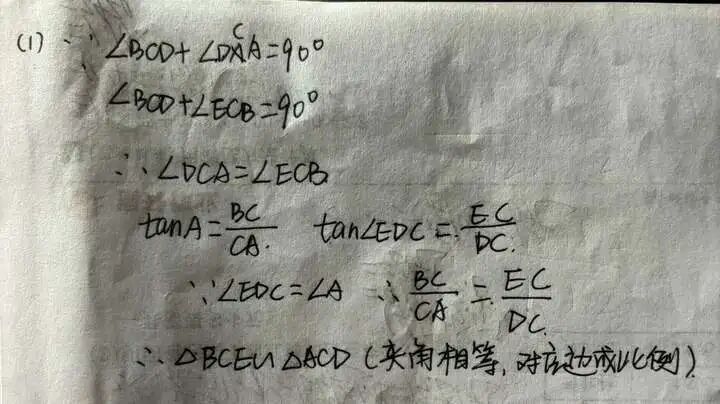 (1) ∵ ∠BCD+∠DCA=90°
∠BCD+∠ECB=90°
∴ ∠DCA=∠ECB
tanA=BC/CA. tan∠EDC=EC/DC.
∵∠EDC=∠A ∴ BC/CA=EC/DC.
∴ △BCE∽△ACD (夹角相等,对应边成比例)